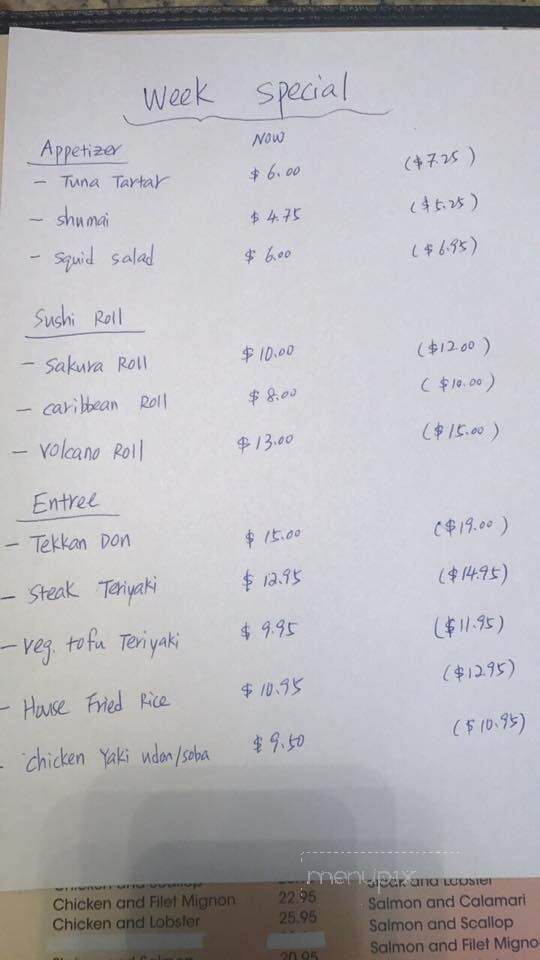 Week Special
Now
Appetizer
- Tuna Tartar $6.00 ($7.25)
- shumai $4.75 ($5.25)
- squid salad $6.00 ($6.95)
Sushi Roll
- Sakura Roll $10.00 ($12.00)
- caribbean Roll $8.00 ($10.00)
- Volcano Roll $13.00 ($15.00)
Entree
- Tekkan Don $15.00 ($19.00)
- Steak Teriyaki $12.95 ($14.95)
- veg. tofu Teriyaki $9.95 ($11.95)
- House Fried Rice $10.95 ($12.95)
- chicken Yaki udon/soba $9.50 ($10.95)
menupix
Steak and Lobster
Chicken and Filet Mignon 22.95 Salmon and Calamari
Chicken and Lobster 25.95 Salmon and Scallop
Salmon and Filet Migno
20.95